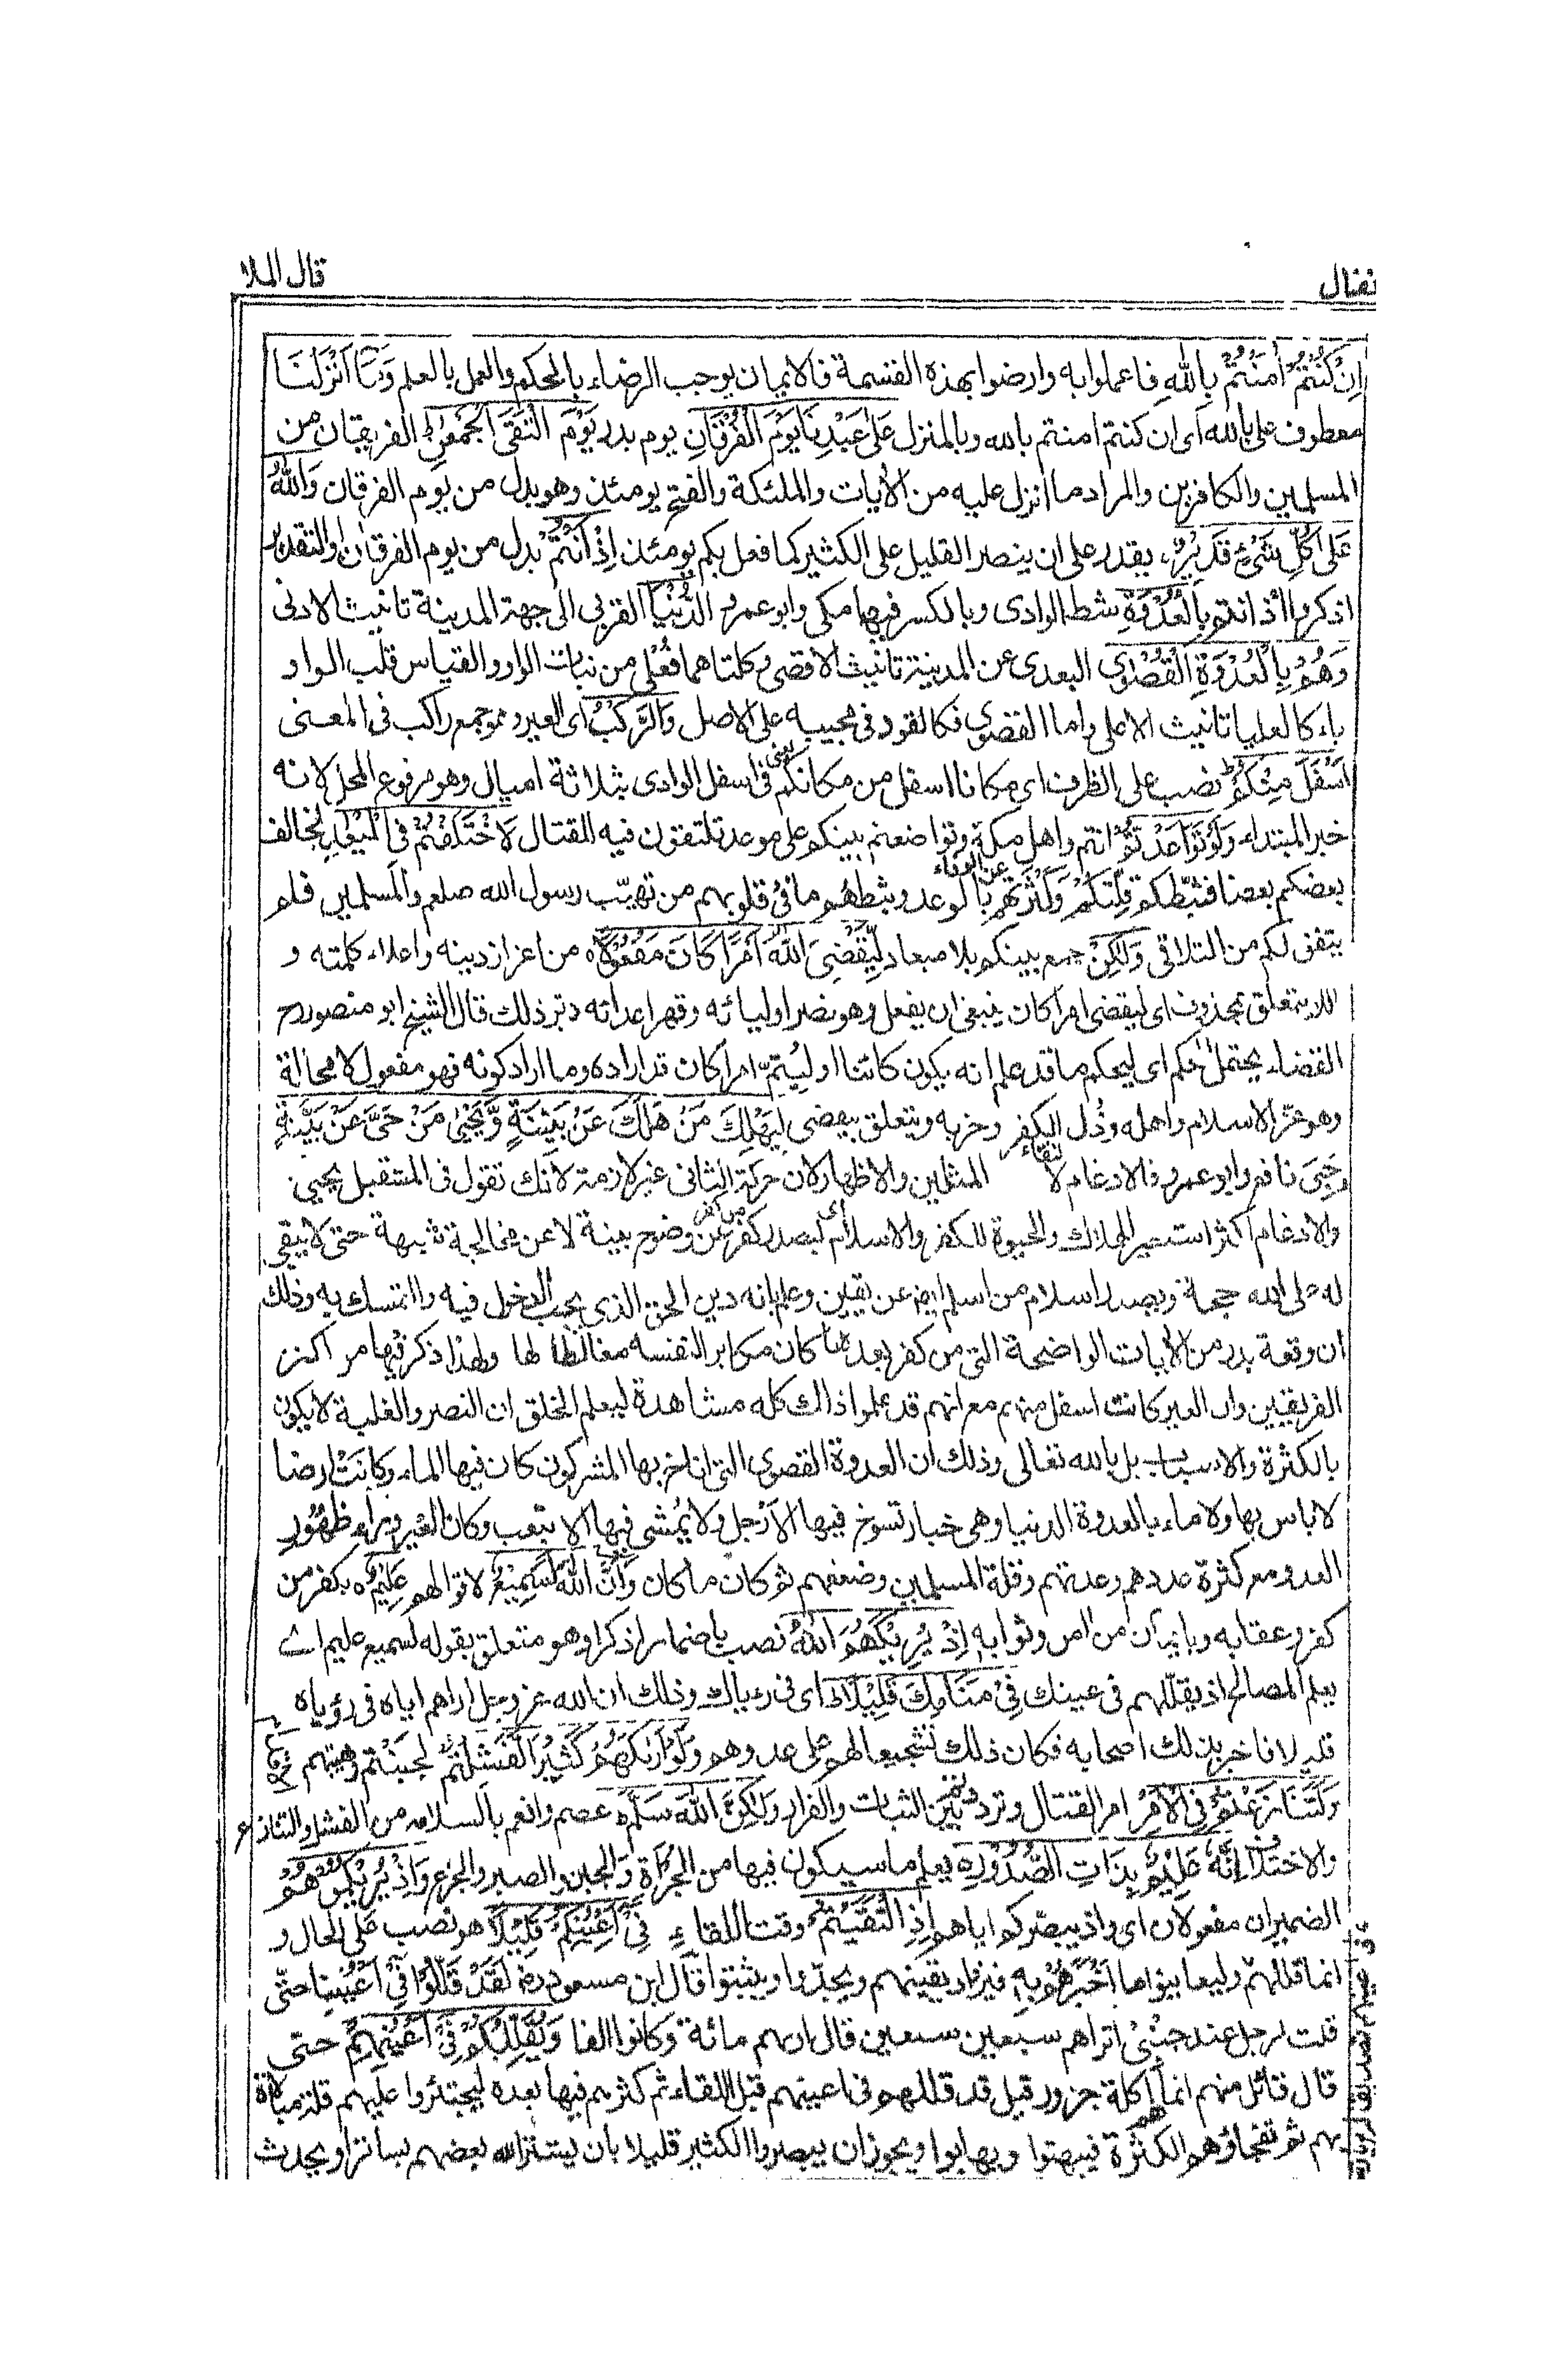 نفال
قال الملا
اِنْ كُنْتُمْ اٰمَنْتُمْ بِاللّٰهِ فاعملوا به وارضوا بهذه القسمة فالايمان يوجب الرضاء بالحكم والعمل بالعلم وَمَآ اَنْزَلْنَا
معطوف على بالله اى ان كنتم امنتم بالله وبالمنزل عَلٰى عَبْدِنَا يَوْمَ الْفُرْقَانِ يوم بدر يَوْمَ الْتَقَى الْجَمْعٰنِ الفريقان من
المسلمين والكافرين والمراد ما انزل عليه من الأيات والملئكة والفتح يومئذ وهو بدل من يوم الفرقان وَاللّٰهُ
عَلٰى كُلِّ شَىْءٍ قَدِيْرٌ يقدر على ان ينصر القليل على الكثير كما فعل بكم يومئذ اِذْ اَنْتُمْ بدل من يوم الفرقان او التقدير
اذكروا اذ انتم بِالْعُدْوَةِ شط الوادى وبالكسر فيهما مكى وابو عمرو الدُّنْيَا القربى الى جهة المدينة تانيث الادنى
وَهُمْ بِالْعُدْوَةِ الْقُصْوٰى البعدى عن المدينة تانيث الاقصى وكلتاهما فُعْلى من نبات الواو والقياس قلب الواو
ياء كالعليا تانيث الاعلى واما القصوى فكالقود فى مجيبه على الاصل وَالرَّكْبُ اى العير وهو جمع راكب فى المعنى
اَسْفَلَ مِنْكُمْ نصب على الظرف اى مكانا اسفل من مكانكم يعنى فى اسفل الوادى بثلاثة اميال وهو مرفوع المحل لانه
خبر المبتداء وَلَوْ تَوَاعَدْتُّمْ انتم واهل مكة وتواضعتم بينكم على موعد تلتقون فيه للقتال لَاخْتَلَفْتُمْ فِى الْمِيْعٰدِ لخالف
بعضكم بعضا فثبّطكم قِلّتكُمْ وكَثْرتهم عن الوفاء بالوعد وثبطهم ما فى قلوبهم من تهيّب رسول الله صلعم والمسلمين فلم
يتفق لكم من التلاقى وَلٰكِنْ جمع بينكم بلا ميعاد لِّيَقْضِىَ اللّٰهُ اَمْرًا كَانَ مَفْعُوْلًا من اعزاز دينه واعلاء كلمته و
اللام يتعلق بمحذوف اى ليقضى امرا كان ينبغى ان يفعل وهو نصر اوليائه وقهر اعدائه دبّر ذلك قال الشيخ ابو منصور رح
القضاء يحتمل الحكم اى ليحكم ما قد علم انه يكون كائنا او ليُتمّ امرا كان قد اراده وما اراد كونه فهو مفعول لا محالة
وهو عزّ الاسلام واهله وذُل الكفر وحزبه ويتعلق بيقضى لِيَهْلِكَ مَنْ هَلَكَ عَنْ بَيِّنَةٍ وَّيَحْيٰى مَنْ حَىَّ عَنْ بَيِّنَةٍ
حَيِىَ نافع وابو عمرو فالادغام لالتقاء المثلين والاظهار لان حركة الثانى غير لازمة لانك تقول فى المستقبل يحيى
والادغام اكثر استعير الهلاك والحيوة للكفر والاسلام اى ليصدر كفر من كفر عن وضوح بينة لا عن مخالجة شبهة حتى لا يبقى
له على الله حجة ويصدر اسلام من اسلم ايض عن يقين وعلم بانه دين الحق الذى يجب الدخول فيه والتمسك به وذلك
ان وقعة بدر من الأيات الواضحة التى من كفر بعدها كان مكابرا لنفسه مغالطا لها ولهذا ذكر فيها مراكز
الفريقين وان العير كانت اسفل منهم مع انهم قد علموا ذلك كله مشاهدة ليعلم الخلق ان النصر والغلبة لا يكون
بالكثرة والاسباب بل بالله تعالى وذلك ان العدوة القصوى التى اناخ بها المشركون كان فيها الماء وكانت ارضا
لا باس بها ولا ماء بالعدوة الدنيا وهى خبار تسوخ فيها الارجل ولا يُمشى فيها الا بتعب وكان العير وراء ظهور
العدو مع كثرة عددهم وعدتهم وقلة المسلمين وضعفهم ثم كان ما كان وَاِنَّ اللّٰهَ لَسَمِيْعٌ لاقوالهم عَلِيْمٌ بكفر من
كفر وعقابه وبايمان من امن وثوابه اِذْ يُرِيْكَهُمُ اللّٰهُ نصب باضمار اذكر او هو متعلق بقوله لسميع عليم اى
يعلم المصالح اذ يقللهم فى عينك فِىْ مَنَامِكَ قَلِيْلًا اى فى رءياك وذلك ان الله عز وجل اراهم اياه فى رؤياه
قليلا فاخبر بذلك اصحابه فكان ذلك تشجيعا لهم على عدوهم وَلَوْ اَرٰىكَهُمْ كَثِيْرًا لَّفَشِلْتُمْ لجبنتم وهبتم
وَلَتَنَازَعْتُمْ فِى الْاَمْرِ امر القتال وترددتم بين الثبات والفرار وَلٰكِنَّ اللّٰهَ سَلَّمَ عصم وانعم بالسلامة من الفشل والتنازع
والاختلاف اِنَّهٗ عَلِيْمٌ بِذَاتِ الصُّدُوْرِ يعلم ما سيكون فيها من الجرأة والجبن والصبر والجزع وَاِذْ يُرِيْكُمُوْهُمْ
الضميران مفعولان اى واذ يبصّركم اياهم اِذِ الْتَقَيْتُمْ وقت اللقاء فِىْٓ اَعْيُنِكُمْ قَلِيْلًا هو نصب على الحال و
انما قللهم وليعاينوا ما اخبرهم به فيزداد يقينهم ويجدّوا ويثبتوا قال ابن مسعود رض لقد قللوا فى اعيننا حتّى
قلت لرجل عند جنبى اتراهم سبعين قال اريهم مائة وكانوا الفا وَيُقَلِّلُكُمْ فِىْٓ اَعْيُنِهِمْ حتى
قال قائل منهم انما هم اكلة جزور قيل قد قللهم فى اعينهم قبل اللقاء ثم كثرهم فيها بعده ليجتئروا عليهم قلة مبالاة
بهم ثم تفجاؤهم الكثرة فيبهتوا ويهابوا ويجوز ان يبصروا الكثير قليلا بان يستر الله بعضهم بساتر او يحدث